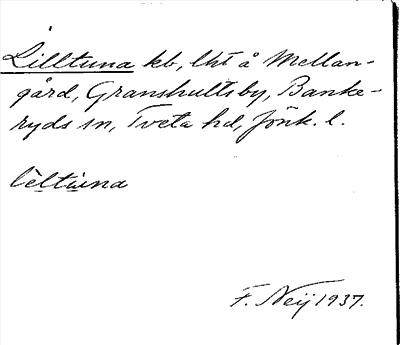 Lilltuna kb, lht å Mellan-
gård, Granshultsby, Banke-
ryds sn, Tveta hd, Jönk. l.
lèltùna
F. Neij 1937.